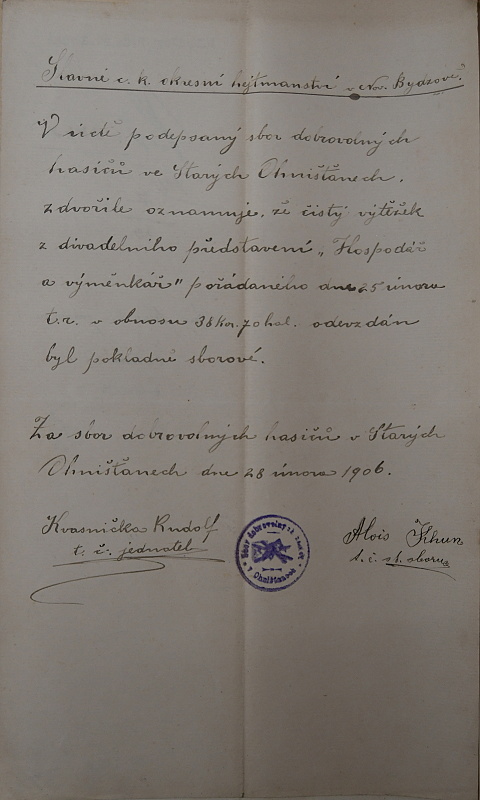 Slavné c. k. okresní hejtmanství v Nov. Bydžově.
V úctě podepsaný sbor dobrovolných
hasičů ve Starých Ohništanech,
zdvořile oznamuje, že čistý výtěžek
z divadelního představení „Hospodář
a výměnkář" pořádaného dne 25 února
t.r. v obnosu 38 Kor. 70 hal. odevzdán
byl pokladně sborové.
Za sbor dobrovolných hasičů v Starých
Ohništanech dne 28 února 1906.
Kvasnička Rudolf
t. č. jednatel
Sbor dobrovolných
v Ohništanech
Alois
t. č. st. sboru